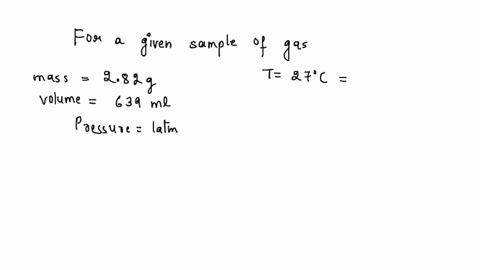 For a given sample of gas
mass = 2.82g T= 27°C =
volume = 639 ml
Pressure = 1atm